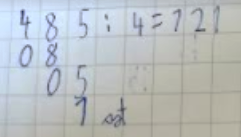 485:4=121
08
05
1 ost